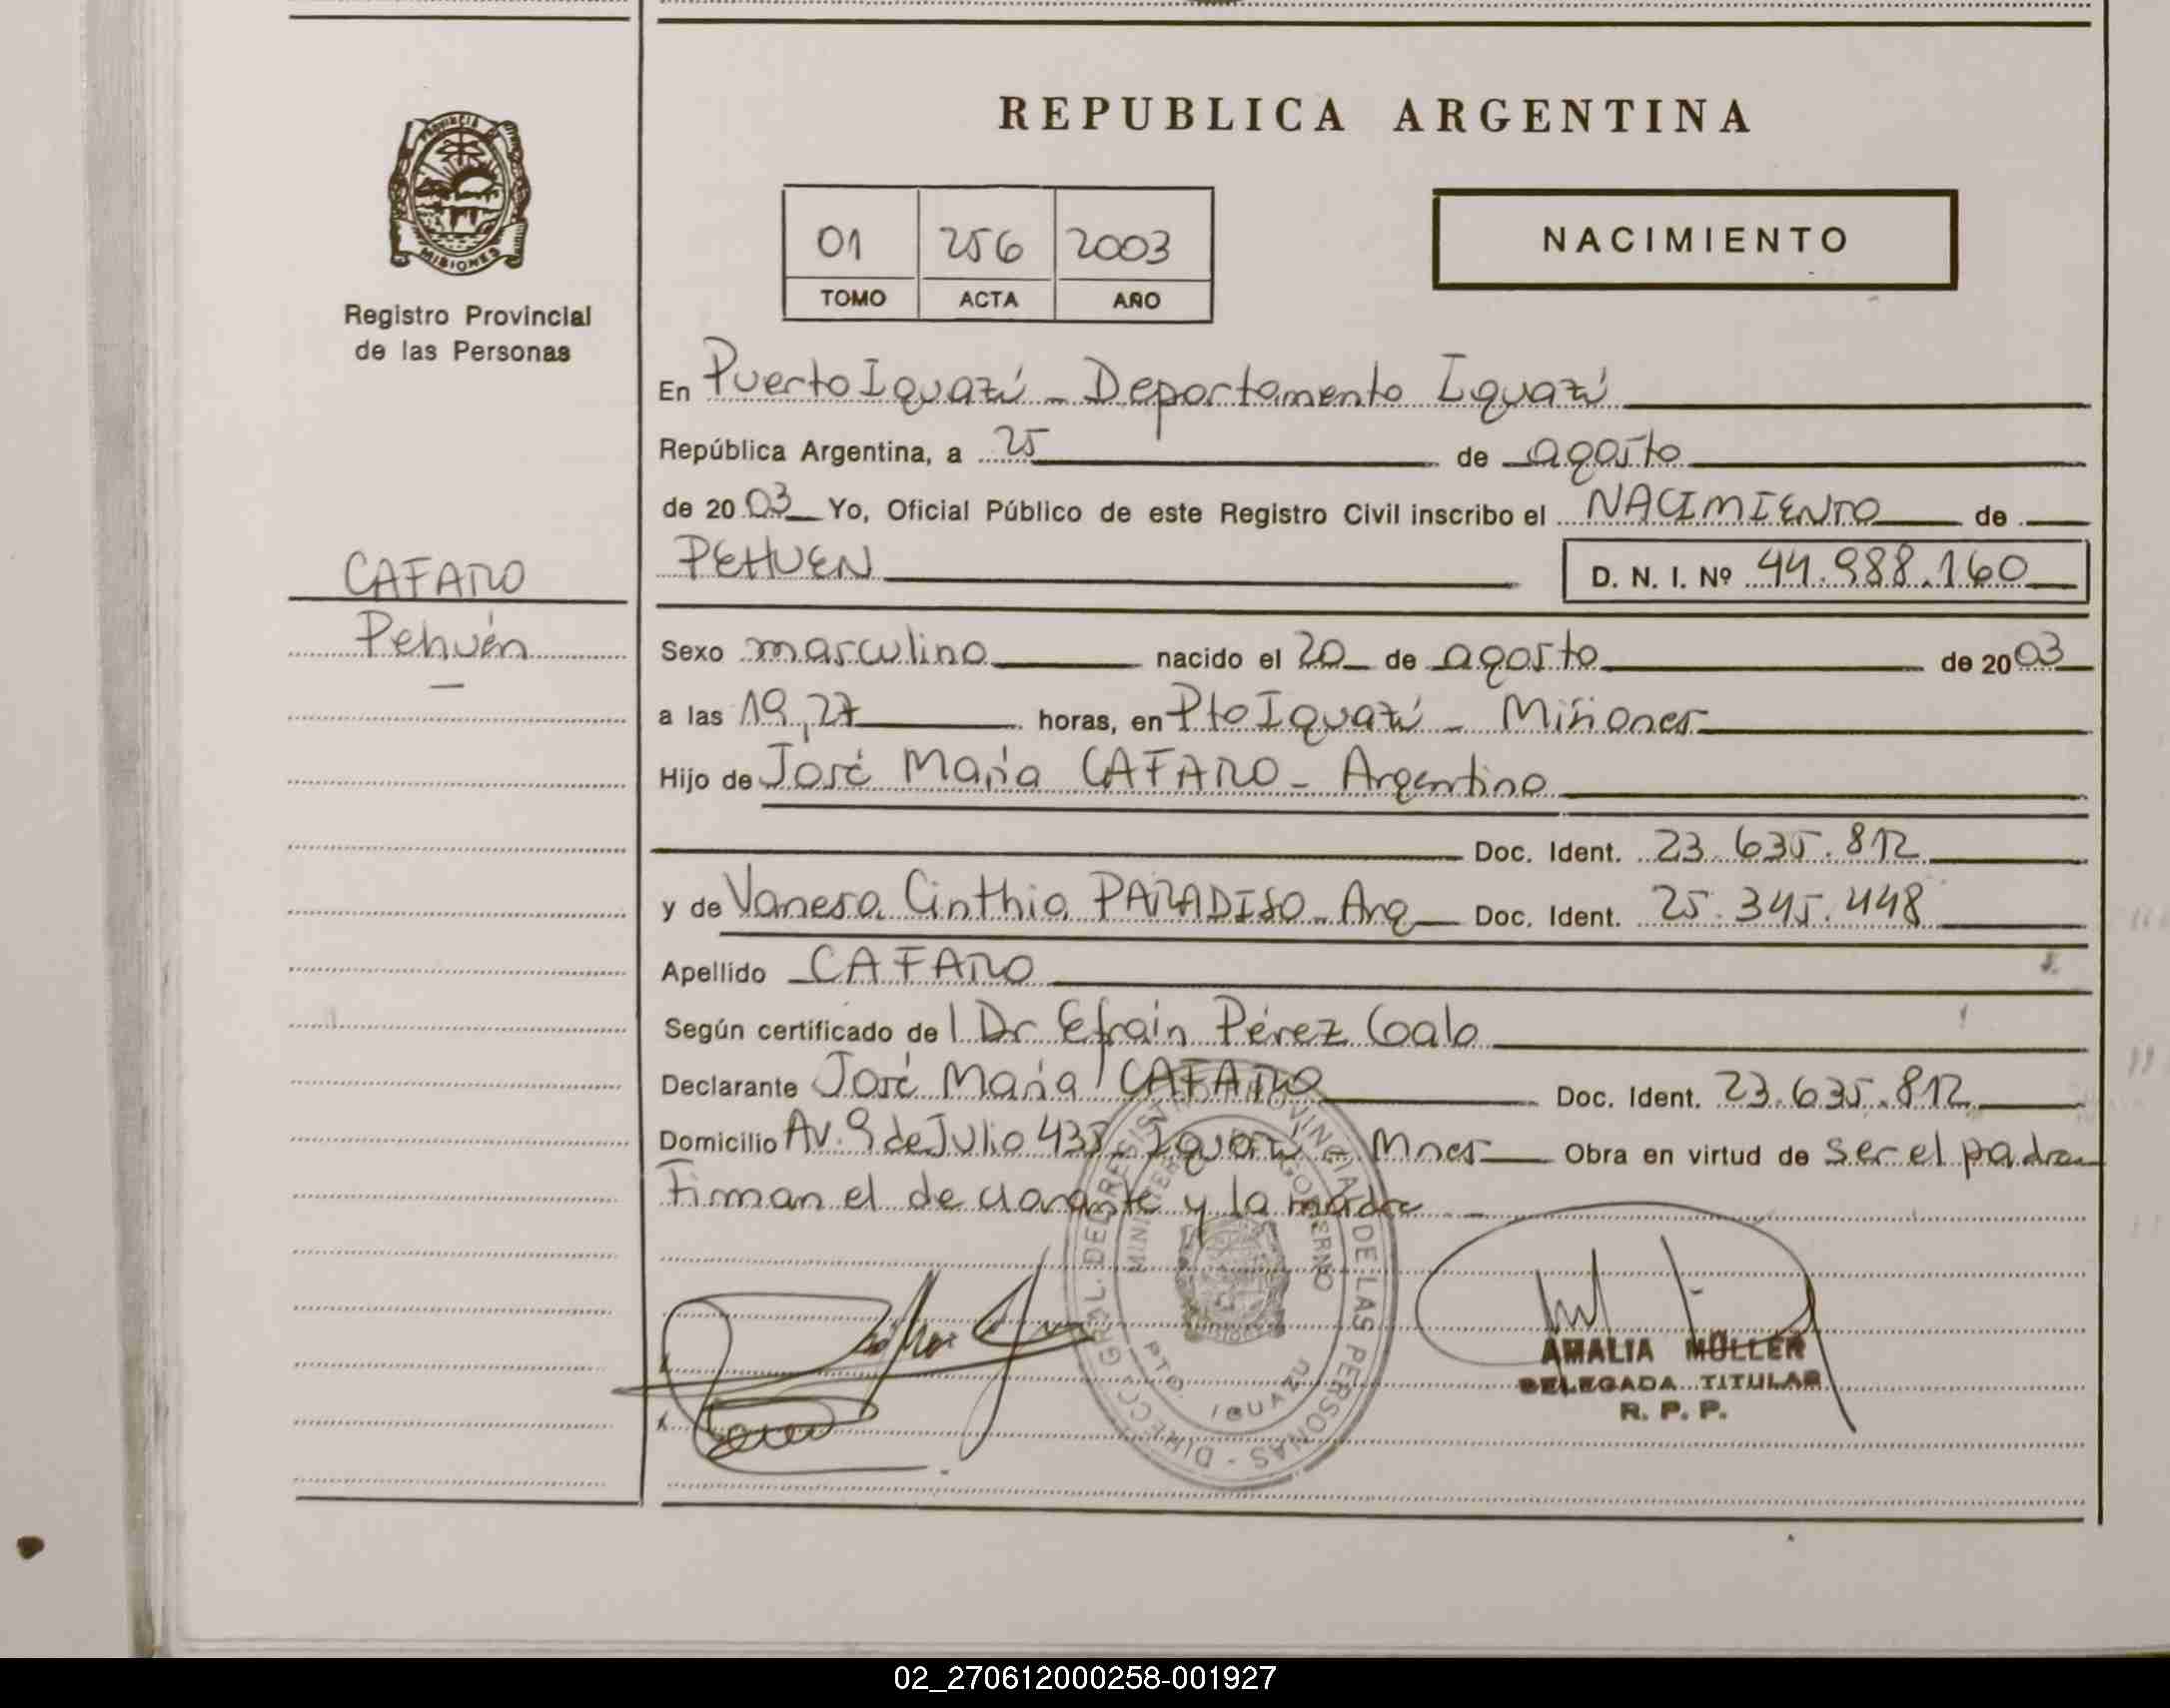 REPUBLICA ARGENTINA
PROVINCIA DE MISIONES
Registro Provincial
de las Personas
01 256 2003
TOMO ACTA AÑO
NACIMIENTO
En Puerto Iguazú - Departamento Iguazú
República Argentina, a 25 de agosto
de 2003 Yo, Oficial Público de este Registro Civil inscribo el NACIMIENTO de
PEHUEN D. N. I. Nº 44.988.160
CAFARO
Pehuén
Sexo masculino nacido el 20 de agosto de 2003
a las 19,27 horas, en Pto Iguazú - Misiones
Hijo de José María CAFARO - Argentino
Doc. Ident. 23.635.812
y de Vanesa Cinthia PARADISO - Arg Doc. Ident. 25.345.448
Apellido CAFARO
Según certificado de l Dr Efraín Pérez Galo
Declarante José María CAFARO Doc. Ident. 23.635.812
Domicilio Av. 9 de Julio 435 - Iguazú - Mnes Obra en virtud de ser el padre
Firman el declarante y la madre -
DIRECC. GRAL. DEL REGISTRO PROVINCIAL DE LAS PERSONAS -
MINISTERIO GOBIERNO
PTO. IGUAZU
AMALIA MÜLLER
DELEGADA TITULAR
R. P. P.
02_270612000258-001927